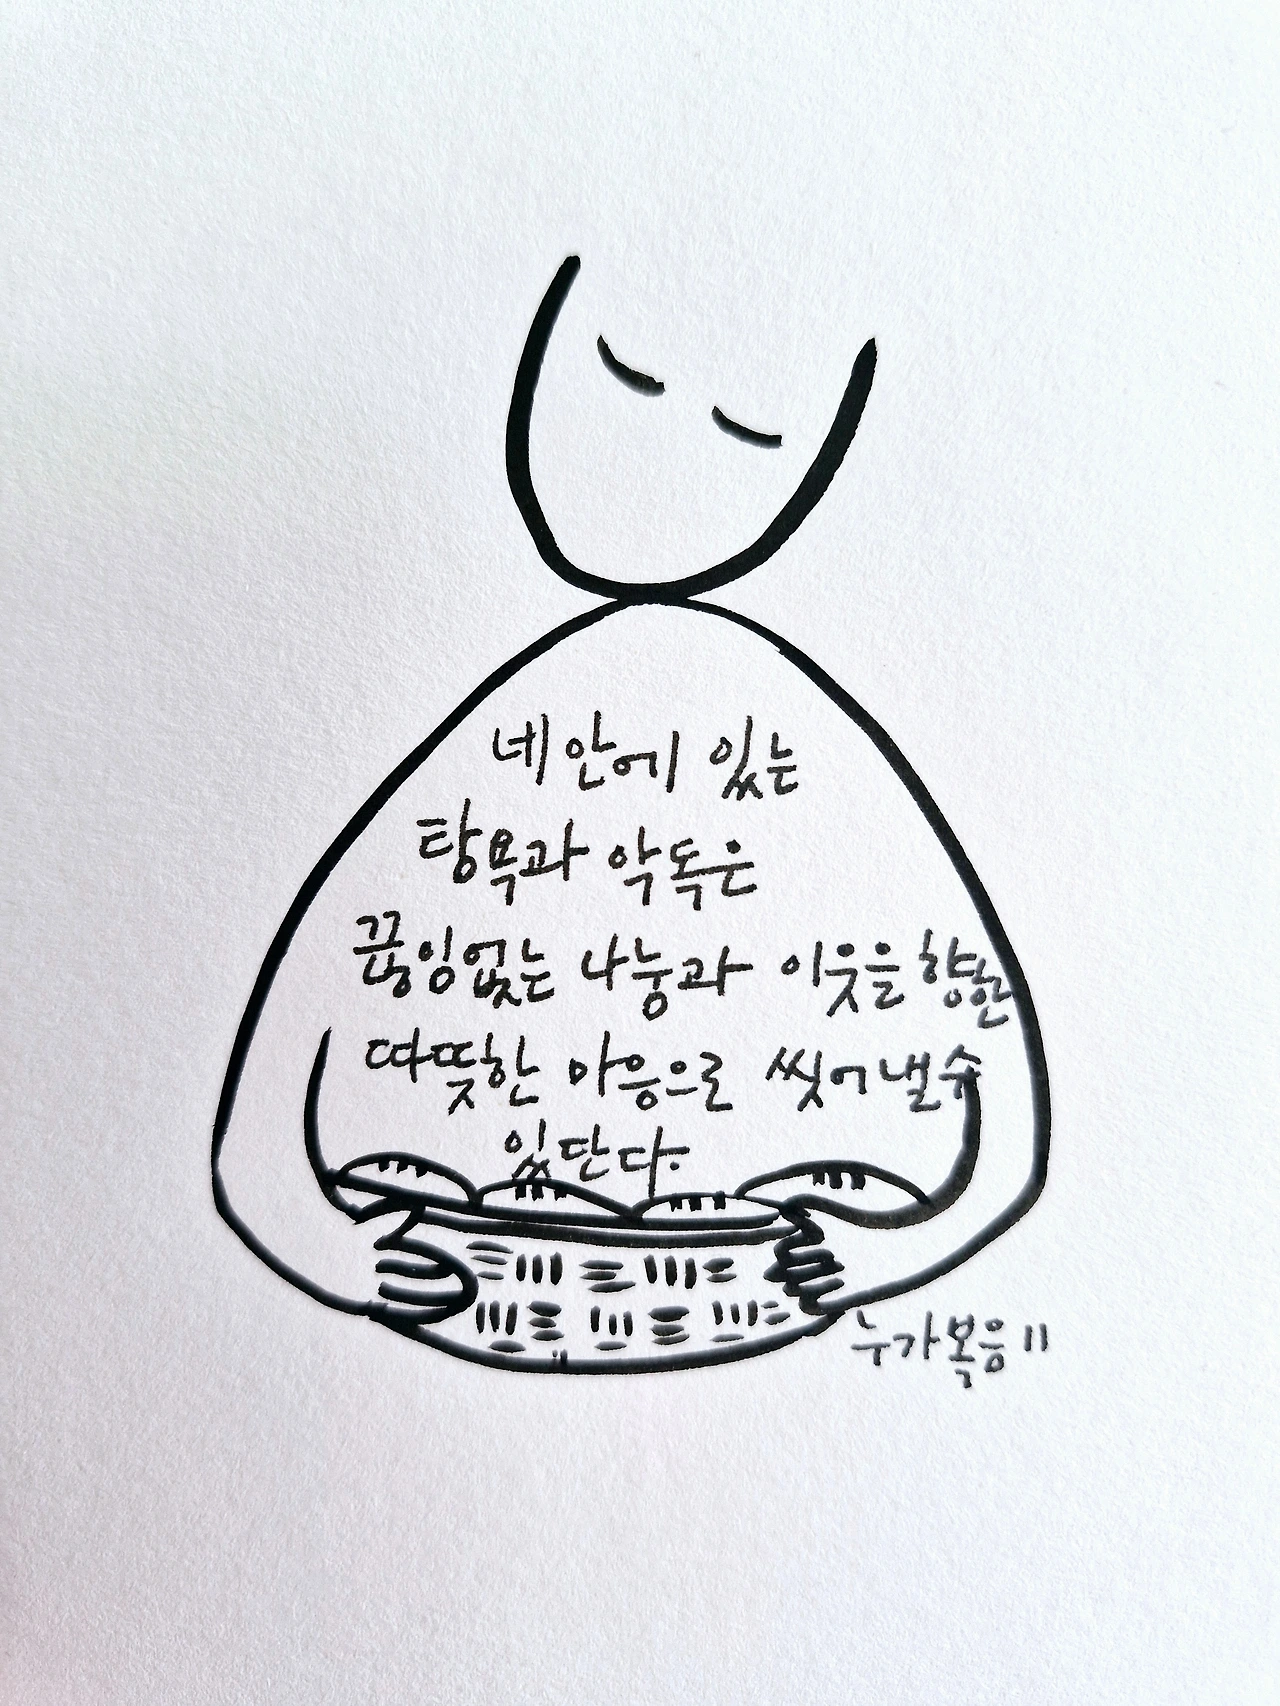 네 안에 있는
탐욕과 악독은
끊임없는 나눔과 이웃을 향한
따뜻한 마음으로 씻어 낼 수
있단다.
누가복음 11